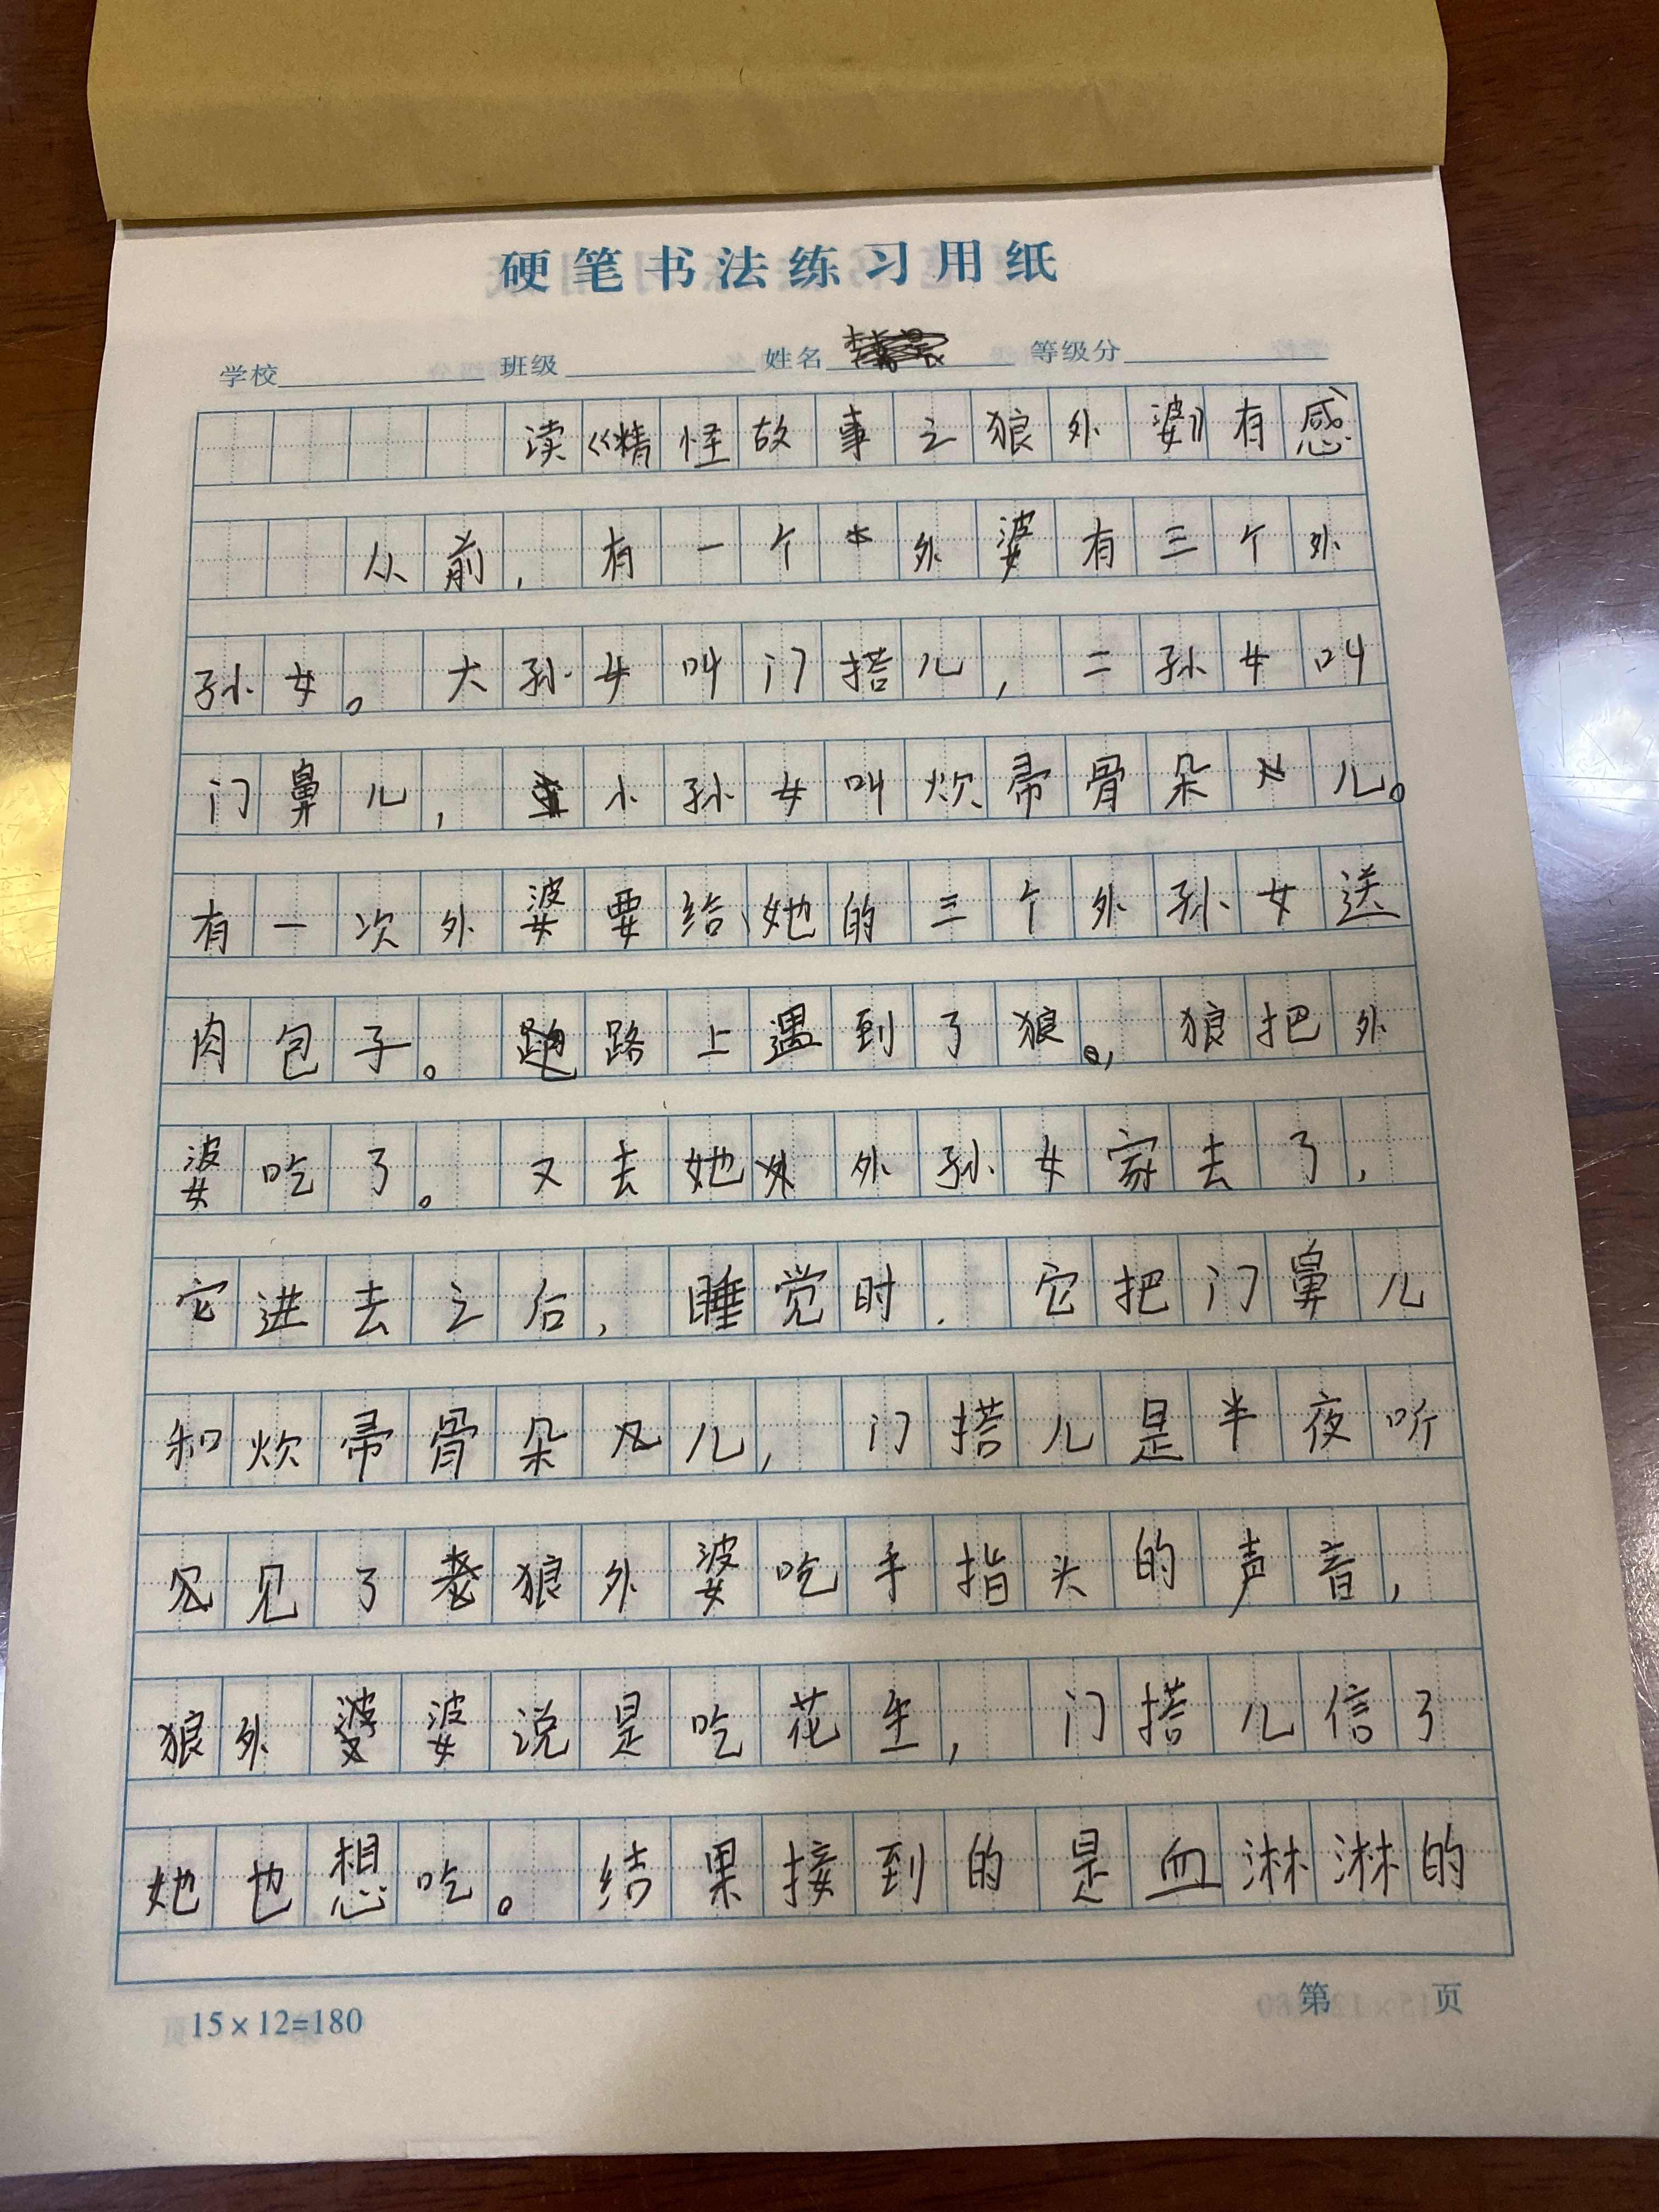 硬笔书法练习用纸
学校 班级 姓名 等级分
读《精怪故事之狼外婆》有感
从前，有一个外婆有三个外
孙女。大孙女叫门搭儿，二孙女叫
门鼻儿，小孙女叫炊帚骨朵儿。
有一次外婆要给她的三个外孙女送
肉包子。路上遇到了狼，狼把外
婆吃了。又去她外孙女家去了，
它进去之后，睡觉时，它把门鼻儿
和炊帚骨朵儿，门搭儿是半夜听
见了老狼外婆吃手指头的声音，
狼外婆说是吃花生，门搭儿信了
她也想吃。结果接到的是血淋淋的
15×12=180 第 页